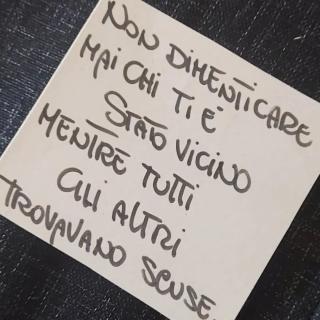 NON DIMENTICARE
MAI CHI TI È
STATO VICINO
MENTRE TUTTI
GLI ALTRI
TROVAVANO SCUSE.